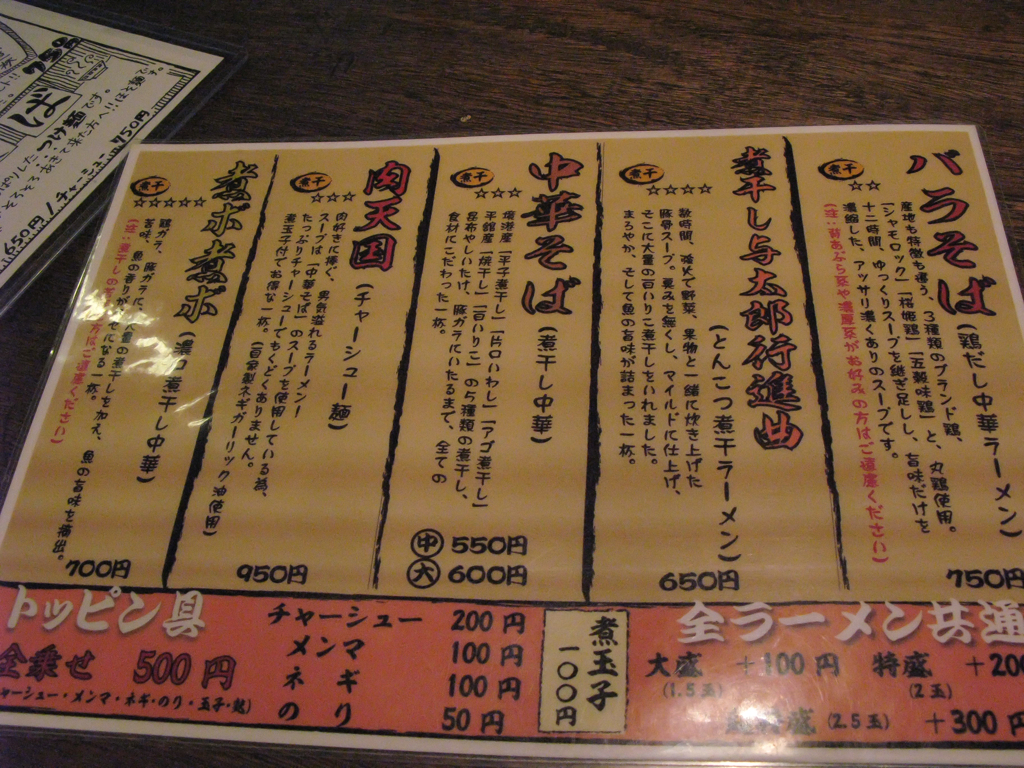 バラそば(鶏だし中華ラーメン)
煮干
☆☆
産地も特徴も違う、3種類のブランド鶏、
「シャモロック」「桜姫鶏」「五穀味鶏」と、丸鶏使用。
十二時間、ゆっくりスープを継ぎ足しし、旨味だけを
濃縮した、アッサリ濃くありのスープです。
(注:背あぶら系や濃厚系がお好みの方はご遠慮ください)
750円
煮干し与太郎行進曲
(とんこつ煮干ラーメン)
煮干
☆☆☆☆
数時間、強火で野菜、果物と一緒に炊き上げた
豚骨スープ。臭みを無くし、マイルドに仕上げ、
そこに大量の百いりこ煮干しをいれました。
まろやか、そして魚の旨味が詰まった一杯。
650円
中華そば(煮干し中華)
煮干
☆☆☆
境港産「平子煮干し」「片口いわし」「アゴ煮干し」
平舘産「焼干し」「百いりこ」の5種類の煮干し、
昆布やしいたけ、豚ガラにいたるまで、全ての
食材にこだわった一杯。
中 550円
大 600円
肉天国(チャーシュー麺)
煮干
☆☆☆
肉好きに捧ぐ、男気溢れるラーメン!
スープは「中華そば」のスープを使用している為、
たっぷりチャーシューでもくどくありません。
煮玉子付でお得な一杯。(自家製ネギガーリック油使用)
950円
煮ボ煮ボ(濃口煮干し中華)
煮干
☆☆☆☆☆
鶏ガラ、豚ガラに、大量の煮干しを加え、魚の旨味を抽出。
苦味、魚の香りがくせになる一杯。
(注:煮干しの方はご遠慮ください)
700円
トッピン具
全乗せ 500円
チャーシュー 200円
メンマ 100円
ネギ 100円
のり 50円
煮玉子
一〇〇円
全ラーメン共通
大盛 +100円 特盛 +200
(1.5玉) (2玉)
(2.5玉) +300円
750円
ば
つけ麺です。
650円/チャーシュー750円